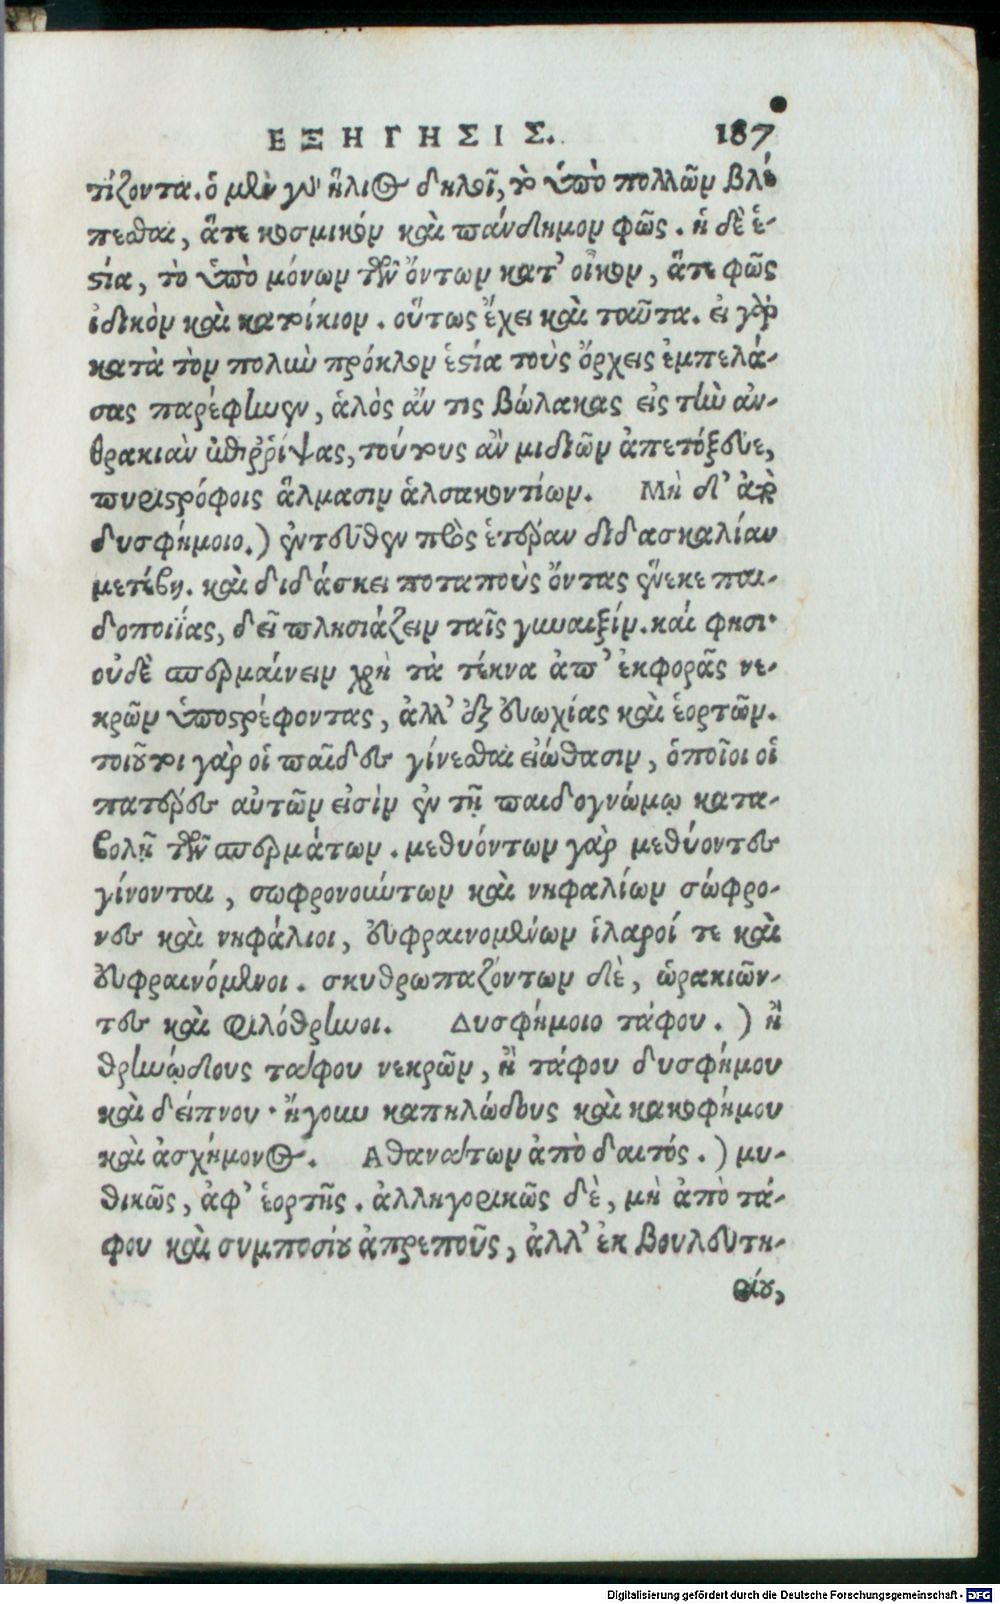 ΕΞΗΓΗΣΙΣ. 187
τίζοντα. ὁ μὲν γὰρ ἥλιος δηλοῖ, τὸ ὑπὸ πολλῶν βλέ
πεσθαι, ἅτε κοσμικόν καὶ πάνδημον φῶς. ἡ δὲ ἑ-
στία, τὸ ὑπὸ μόνων τῶν ὄντων κατ' οἶκον, ἅτε φῶς
ἰδικὸν καὶ κατοίκιον. οὕτως ἔχει καὶ ταῦτα. εἰ γὰρ
κατὰ τὸν πολιὺ πρόκλον ἑστία τοὺς ὄρχεις ἐμπελά-
σας παρέφηνεν, ἁλὸς ἄν τις βώλακας εἰς τὴν ἀν-
θρακιὰν ἐπιῤῥίψας, τούτους ἂν μιδιῶν ἀπετόξευε,
πυριστρόφοις ἅλμασιν ἁλσακοντίων. Μὴ δ' ἀπὸ
δυσφήμοιο.) ἐντεῦθεν πρὸς ἑτέραν διδασκαλίαν
μετέβη. καὶ διδάσκει ποταποὺς ὄντας ἕνεκε παι-
δοποιΐας, δεῖ πλησιάζειν ταῖς γυναιξίν. καί φησι·
οὐδὲ σπερμαίνειν χρὴ τὰ τέκνα ἀπ' ἐκφορᾶς νε-
κρῶν ὑποστρέφοντας, ἀλλ' ἐξ εὐωχίας καὶ ἑορτῶν.
τοιοῦτοι γὰρ οἱ παῖδες γίνεσθαι εἰώθασιν, ὁποῖοι οἱ
πατέρες αὐτῶν εἰσὶν ἐν τῇ παιδογνώμῳ κατα-
βολῇ τῶν σπερμάτων. μεθυόντων γὰρ μεθύοντες
γίνονται, σωφρονούντων καὶ νηφαλίων σώφρο-
νες καὶ νηφάλιοι, εὐφραινομένων ἱλαροί τε καὶ
εὐφραινόμενοι. σκυθρωπαζόντων δὲ, ὠρακιῶν-
τες καὶ φιλόθρηνοι. Δυσφήμοιο τάφου.) ἢ
θρηνώδους τάφου νεκρῶν, ἢ τάφου δυσφήμου
καὶ δείπνου· ἤγουν καπηλώδους καὶ κακοφήμου
καὶ ἀσχήμονος. Αθανάτων ἀπὸ δαιτός.) μυ-
θικῶς, ἀφ' ἑορτῆς. ἀλληγορικῶς δὲ, μὴ ἀπὸ τά-
φου καὶ συμποσίου ἀπρεποῦς, ἀλλ' ἐκ βουλευτη-
ρίου,
Digitalisierung gefördert durch die Deutsche Forschungsgemeinschaft - DFG